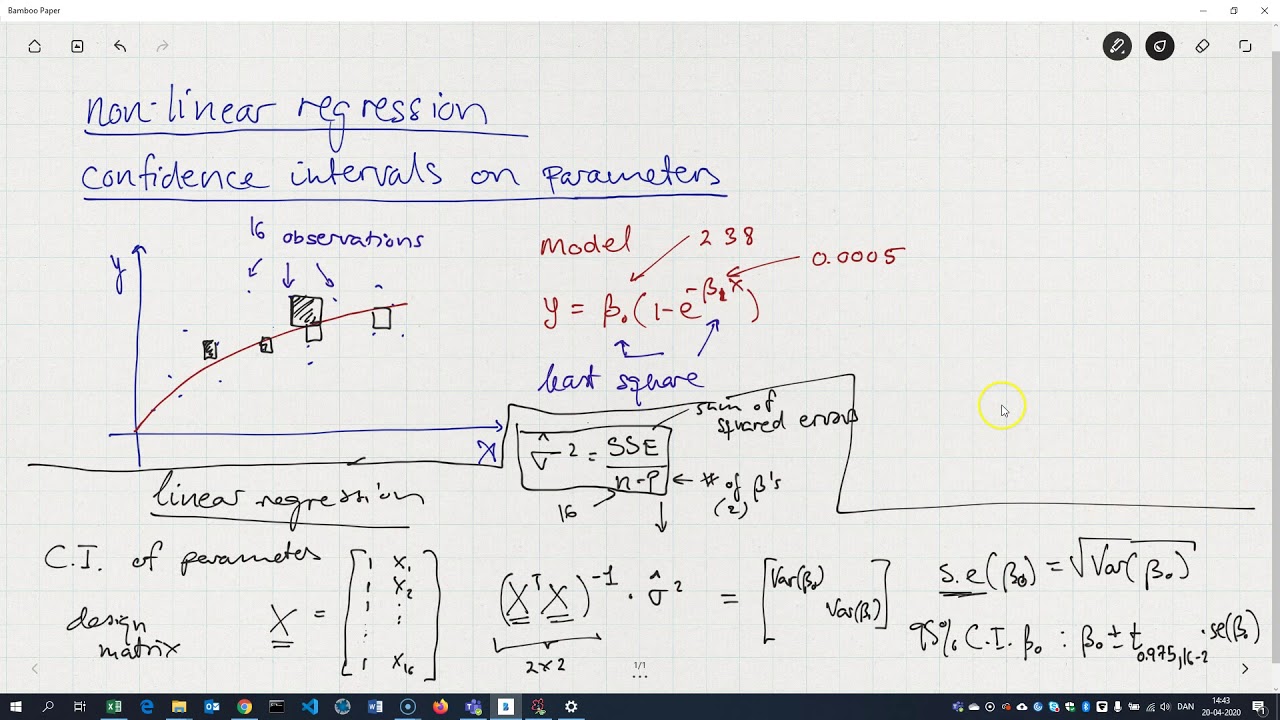 Bamboo Paper
non-linear regression
confidence intervals on parameters
16 observations
y
x
model
238
0.0005
y = β₀(1-e^-β₁x)
least square
sum of
squared errors
σ̂² = SSE / n-p
16
# of β's
(2)
linear regression
C.I. of parameters
design
matrix
X = [1 x₁
1 x₂
1 :
: :
1 x₁₆]
(XᵀX)⁻¹ · σ̂² = [Var(β₀)
Var(β₁)]
2x2
s.e(β₀) = √Var(β₀)
95% C.I. β₀ : β₀ ± t0.975,16-2 · se(β₀)
1/1
DAN
14:43
20-04-2020